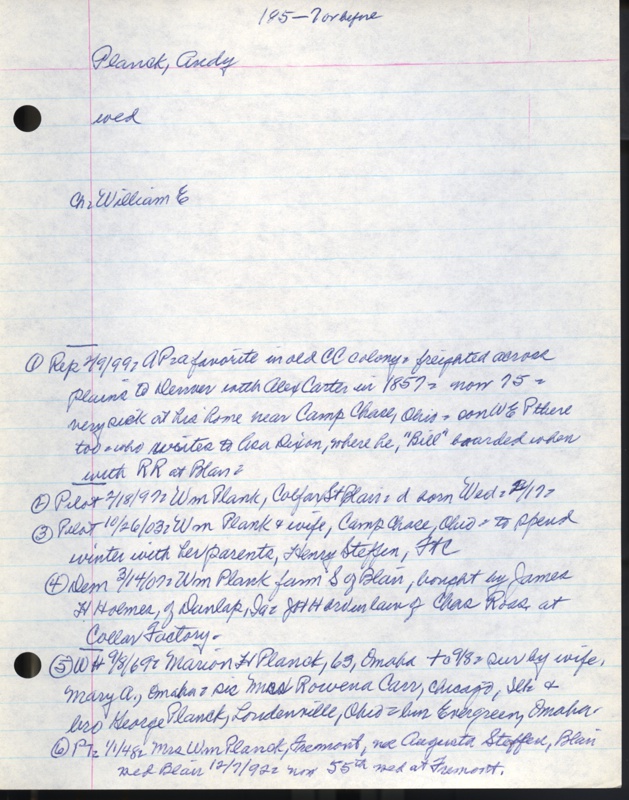 185-7 or before
Planck, Andy
wed
Ch: William E
① Rep 2/9/99: AP = a favorite in old CC colony = freighted across
plains to Denver with Alex Carter in 1857 = now 75 =
very sick at his home near Camp Chase, Ohio = son W E P there
too = who writes to Asa Dixon, where he, "Bill" boarded when
with RR at Blair =
② Pilot 2/18/97: Wm Plank, Colfax St Blair = d born Wed = 2/17 =
③ Pilot 10/26/03: Wm Plank & wife, Camp Chase, Ohio = to spend
winter with her parents, Henry Steffen,
④ Dem 3/14/07: Wm Plank farm S of Blair, bought by James
H Holmes, of Dunlap, Ia = JHH of Chas Ross at
Collar Factory.
⑤ WH 9/8/69: Marion H Planck, 63, Omaha + 9/8 = sur by wife,
Mary A., Omaha = sis Mrs Rowena Carr, Chicago, Ills &
bro George Planck, Loudenville, Ohio = bur Evergreen, Omaha.
⑥ PT: 1/1/48: Mrs Wm Planck, Fremont, nee Augusta Steffen, Blair
wed Blair 12/7/92 = now 55th wed at Fremont.